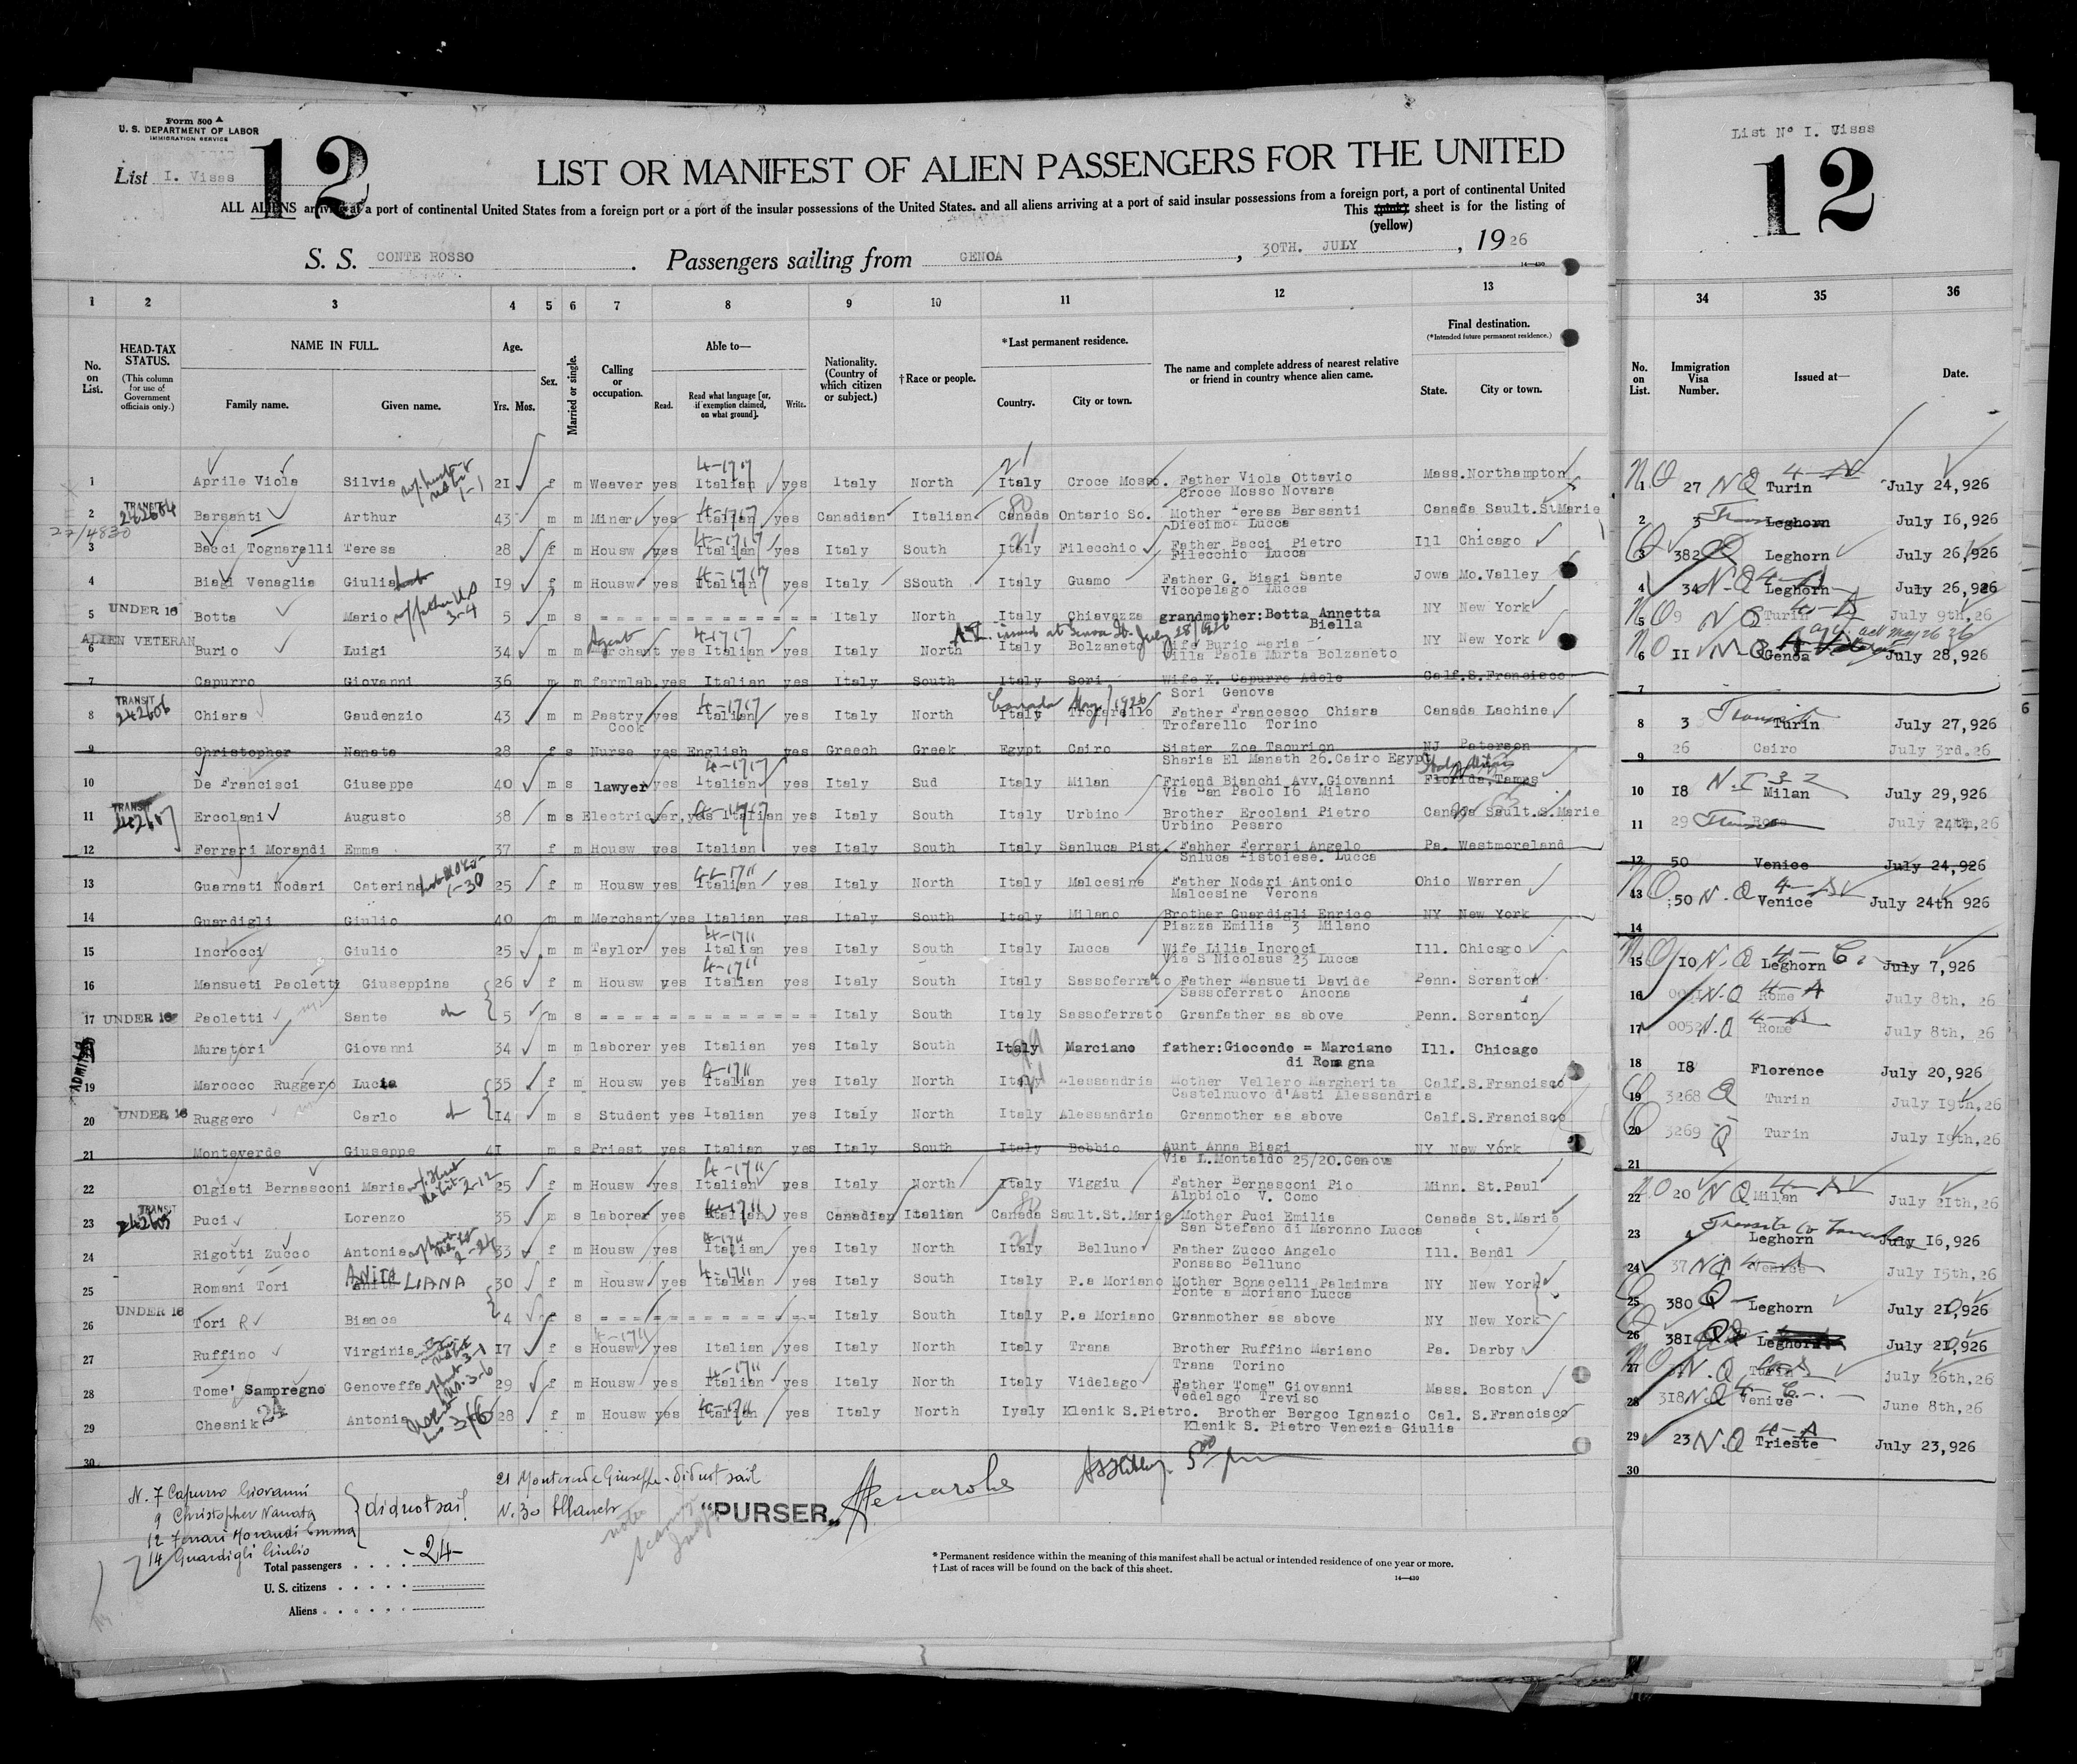 Form 500 A
U. S. DEPARTMENT OF LABOR
IMMIGRATION SERVICE
List I. Visas
12
LIST OR MANIFEST OF ALIEN PASSENGERS FOR THE UNITED
ALL ALIENS arriving at a port of continental United States from a foreign port or a port of the insular possessions of the United States, and all aliens arriving at a port of said insular possessions from a foreign port, a port of continental United
This (pink) sheet is for the listing of
(yellow)
S. S. CONTE ROSSO. Passengers sailing from GENOA, 30TH. JULY, 1926
14—430
List Nº I. Visas
12
1 2 3 4 5 6 7 8 9 10 11 12 13 34 35 36
No. on List. HEAD-TAX STATUS. (This column for use of Government officials only.) NAME IN FULL. Family name. Given name. Age. Yrs. Mos. Sex. Married or single. Calling or occupation. Able to— Read. Read what language [or, if exemption claimed, on what ground]. Write. Nationality. (Country of which citizen or subject.) †Race or people. *Last permanent residence. Country. City or town. The name and complete address of nearest relative or friend in country whence alien came. Final destination. (*Intended future permanent residence.) State. City or town. No. on List. Immigration Visa Number. Issued at— Date.
1 Aprile Viola Silvia 21 f m Weaver yes Italian yes Italy North Italy Croce Mosso. Father Viola Ottavio Mass. Northampton 1 27 NQ Turin July 24,926
Croce Mosso Novara
2 TRANSIT Barsanti Arthur 43 m m Miner yes Italian yes Canadian Italian Canada Ontario So. Mother Teresa Barsanti Canada Sault.St Marie 2 3 Leghorn July 16,926
Diecimo Lucca
3 Bacci Tognarelli Teresa 28 f m Housw yes Italian yes Italy South Italy Filecchio Father Bacci Pietro Ill Chicago 3 382 Leghorn July 26,926
Filecchio Lucca
4 Biagi Venaglia Giulia 19 f m Housw yes Italian yes Italy SSouth Italy Guamo Father G. Biagi Sante Jowa Mo.Valley 4 34 N.Q Leghorn July 26,926
Vicopelago Lucca
5 UNDER 16 Botta Mario 5 m s Italy North Italy Chiavazza grandmother:Botta Annetta NY New York 5 9 NQ Turin July 9th,26
Biella
6 ALIEN VETERAN Burio Luigi 34 m m Merchant yes Italian yes Italy North Italy Bolzaneto Wife Burio Maria NY New York 6 11 N-Q Genoa July 28,926
Villa Paola Murta Bolzaneto
7 Capurro Giovanni 36 m m farmlab.yes Italian yes Italy South Italy Sori Wife X. Capurro Adele Calf.S.Francisco 7
Sori Genova
8 TRANSIT 242606 Chiara Gaudenzio 43 m m Pastry Cook yes Italian yes Italy North Italy Trofarello Father Francesco Chiara Canada Lachine 8 3 Transit Turin July 27,926
Trofarello Torino
9 Christopher Nanata 28 f s Nurse yes English yes Greech Greek Egypt Cairo Sister Zoe Tsourion NJ Paterson 9 26 Cairo July 3rd.26
Sharia El Manath 26.Cairo Egypt
10 De Francisci Giuseppe 40 m s lawyer yes Italian yes Italy Sud Italy Milan Friend Bianchi Avv.Giovanni Florida,Tampa 10 18 Milan July 29,926
Via San Paolo 16 Milano
11 TRANSIT Ercolani Augusto 38 m s Electricier,yes Italian yes Italy South Italy Urbino Brother Ercolani Pietro Canada Sault.S.Marie 11 29 Rome July 24th,26
Urbino Pesaro
12 Ferrari Morandi Emma 37 f m Housw yes Italian yes Italy South Italy Sanluca Pist. Fahher Ferrari Angelo Pa. Westmoreland 12 50 Venice July 24,926
Snluca Pistoiese. Lucca
13 Guarnati Nodari Caterina 25 f m Housw yes Italian yes Italy North Italy Malcesine Father Nodari Antonio Ohio Warren 13 50 N-Q Venice July 24th 926
Malcesine Verona
14 Guardigli Giulio 40 m m Merchant yes Italian yes Italy South Italy Milano Brother Guardigli Enrico NY New York 14
Piazza Emilia 3 Milano
15 Incrocci Giulio 25 m m Taylor yes Italian yes Italy South Italy Lucca Wife Lilia Incroci Ill. Chicago 15 10 N.Q Leghorn July 7,926
Via S Nicolaus 23 Lucca
16 Mansueti Paoletti Giuseppina 26 f m Housw yes Italian yes Italy South Italy Sassoferrato Father Mansueti Davide Penn. Scranton 16 N-Q Rome July 8th, 26
Sassoferrato Ancona
17 UNDER 16 Paoletti Sante 5 m s Italy South Italy Sassoferrato Granfather as above Penn. Scranton 17 0052 N.Q Rome July 8th, 26
ADMITTED Muratori Giovanni 34 m m laborer yes Italian yes Italy South Italy Marciano father:Giocondo = Marciano Ill. Chicago 18 18 Florence July 20,926
di Romagna
19 Marocco Ruggero Lucia 35 f m Housw yes Italian yes Italy North Italy Alessandria Mother Vellero Margherita Calf.S.Francisco 19 3268 Q Turin July 19th,26
Castelnuovo d'Asti Alessandria
20 UNDER 16 Ruggero Carlo 14 m s Student yes Italian yes Italy North Italy Alessandria Granmother as above Calf.S.Francisco 20 3269 Q Turin July 19th,26
21 Monteverde Giuseppe 41 m s Priest yes Italian yes Italy South Italy Bobbio Aunt Anna Biagi NY New York 21
Via L.Montaldo 25/20.Genova
22 Olgiati Bernasconi Maria 25 f m Housw yes Italian yes Italy North Italy Viggiu Father Bernasconi Pio Minn. St.Paul 22 20 NQ Milan July 21th,26
Alnbiolo V. Como
23 TRANSIT 242605 Puci Lorenzo 35 m s laborer yes Italian yes Canadian Italian Canada Sault.St.Marie Mother Puci Emilia Canada St.Marie 23 4 Leghorn July 16,926
San Stefano di Maronno Lucca
24 Rigotti Zucco Antonia 33 f m Housw yes Italian yes Italy North Italy Belluno Father Zucco Angelo Ill. Bendl 24 37 NQ Venice July 15th,26
Fonsaso Belluno
25 Romani Tori ANITA LIANA 30 f m Housw yes Italian yes Italy South Italy P.a Moriano Mother Bonacelli Palmimra NY New York 25 380 Q Leghorn July 21,926
Ponte a Moriano Lucca
26 UNDER 16 Tori R Bianca 4 f s Italy South Italy P.a Moriano Granmother as above NY New York 26 381 Leghorn July 21,926
27 Ruffino Virginia 17 f s Housw yes Italian yes Italy North Italy Trana Brother Ruffino Mariano Pa. Darby 27 N.Q Turin july 26th,26
Trana Torino
28 Tome' Sampregno Genoveffa 29 f m Housw yes Italian yes Italy North Italy Videlago Father Tome" Giovanni Mass. Boston 28 318 N.Q Venice June 8th,26
Vedelago Treviso
29 Chesnik Antonia 28 f m Housw yes Italian yes Italy North Iyaly Klenik S.Pietro. Brother Bergoc Ignazio Cal. S.Francisco 29 23 N.Q Trieste July 23,926
Klenik S. Pietro Venezia Giulia
30 30
N. 7 Capurro Giovanni
9 Christopher Nanata
12 Ferrari Morandi Emma
14 Guardigli Giulio
did not sail
21 Monteverde Giuseppe - did not sail
N. 30 blanch
"PURSER"
Total passengers . . . . -24-
U. S. citizens . . . . .
Aliens . . . . . .
* Permanent residence within the meaning of this manifest shall be actual or intended residence of one year or more.
† List of races will be found on the back of this sheet.
14—430